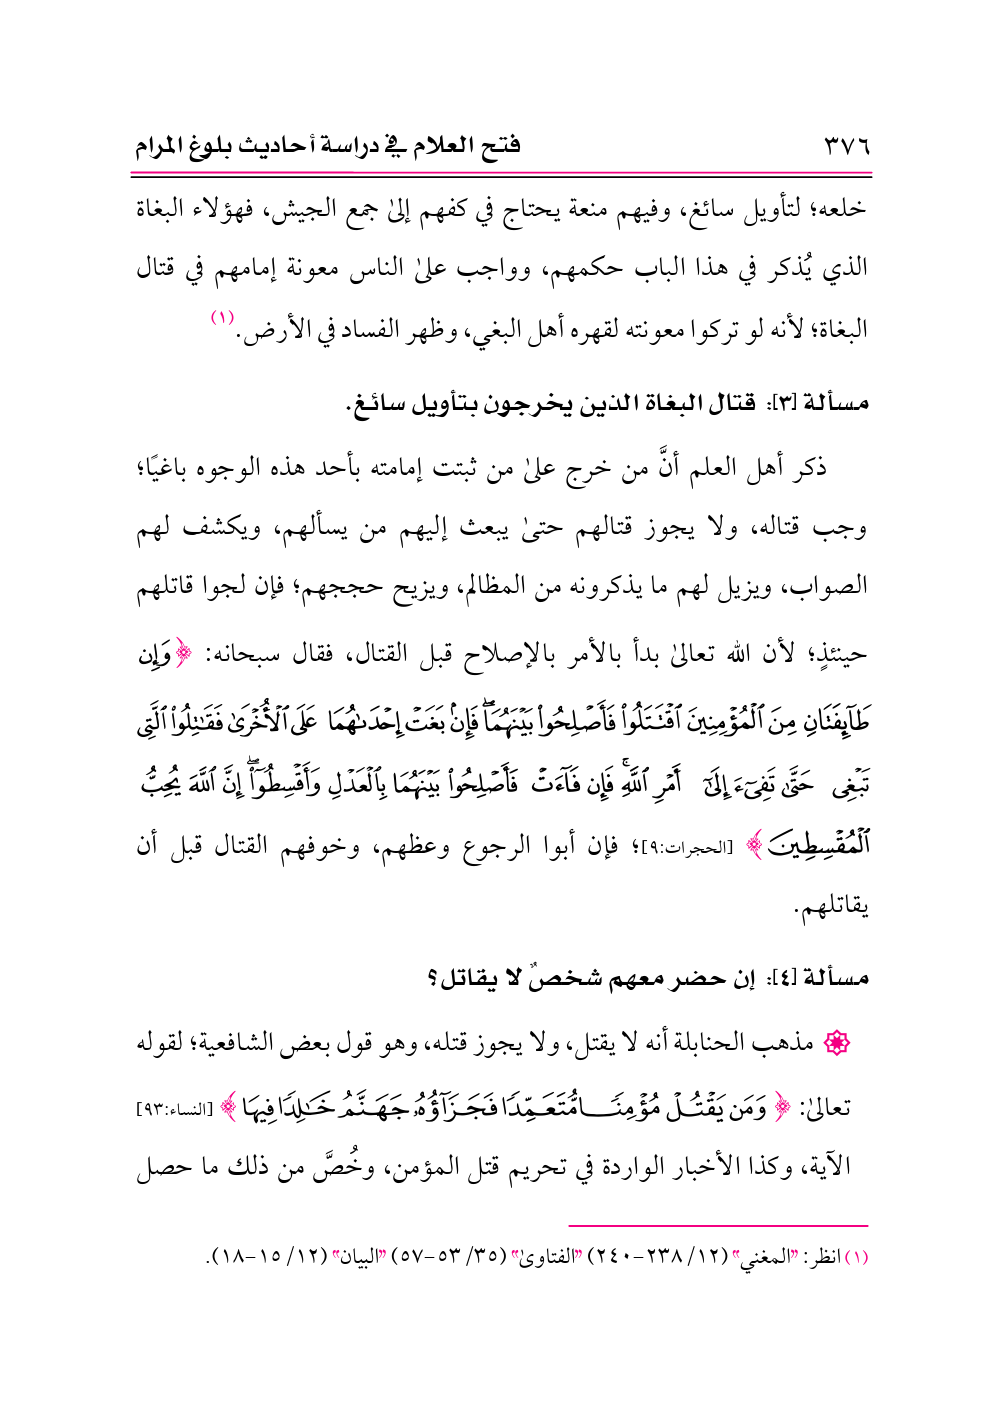 ٣٧٦ فتح العلام في دراسة أحاديث بلوغ المرام
خلعه؛ لتأويل سائغ، وفيهم منعة يحتاج في كفهم إلىٰ جمع الجيش، فهؤلاء البغاة
الذي يُذكر في هذا الباب حكمهم، وواجب علىٰ الناس معونة إمامهم في قتال
البغاة؛ لأنه لو تركوا معونته لقهره أهل البغي، وظهر الفساد في الأرض.(١)
مسألة [٣]: قتال البغاة الذين يخرجون بتأويل سائغ.
ذكر أهل العلم أنَّ من خرج علىٰ من ثبتت إمامته بأحد هذه الوجوه باغيًا؛
وجب قتاله، ولا يجوز قتالهم حتىٰ يبعث إليهم من يسألهم، ويكشف لهم
الصواب، ويزيل لهم ما يذكرونه من المظالم، ويزيح حججهم؛ فإن لجوا قاتلهم
حينئذٍ؛ لأن الله تعالىٰ بدأ بالأمر بالإصلاح قبل القتال، فقال سبحانه: ﴿وَإِن
طَآئِفَتَانِ مِنَ ٱلْمُؤْمِنِينَ ٱقْتَتَلُوا۟ فَأَصْلِحُوا۟ بَيْنَهُمَاۖ فَإِنۢ بَغَتْ إِحْدَىٰهُمَا عَلَى ٱلْأُخْرَىٰ فَقَٰتِلُوا۟ ٱلَّتِى
تَبْغِى حَتَّىٰ تَفِىٓءَ إِلَىٰٓ أَمْرِ ٱللَّهِۚ فَإِن فَآءَتْ فَأَصْلِحُوا۟ بَيْنَهُمَا بِٱلْعَدْلِ وَأَقْسِطُوٓا۟ۖ إِنَّ ٱللَّهَ يُحِبُّ
ٱلْمُقْسِطِينَ﴾ [الحجرات:٩]؛ فإن أبوا الرجوع وعظهم، وخوفهم القتال قبل أن
يقاتلهم.
مسألة [٤]: إن حضر معهم شخصٌ لا يقاتل؟
۞ مذهب الحنابلة أنه لا يقتل، ولا يجوز قتله، وهو قول بعض الشافعية؛ لقوله
تعالىٰ: ﴿وَمَن يَقْتُلْ مُؤْمِنًا مُّتَعَمِّدًا فَجَزَآؤُهُۥ جَهَنَّمُ خَٰلِدًا فِيهَا﴾ [النساء:٩٣]
الآية، وكذا الأخبار الواردة في تحريم قتل المؤمن، وخُصَّ من ذلك ما حصل
(١) انظر: "المغني" (١٢/ ٢٣٨-٢٤٠) "الفتاوىٰ" (٣٥/ ٥٣-٥٧) "البيان" (١٢/ ١٥-١٨).